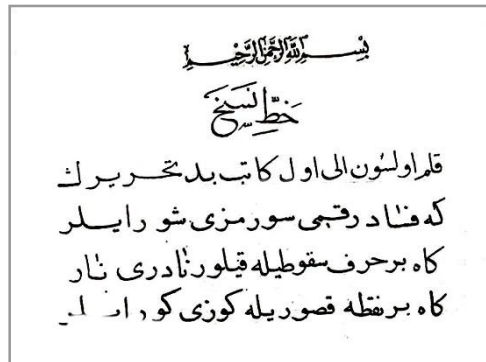 بسم الله الرحمن الرحيم
خط نسخ
قلم اولسون الى اول كاتب بد تحريرك
كه فساد رقمى سورمزى شور ايلر
كاه بر حرف سقوطيله قيلور نادرى نار
كاه بر نقطه قصوريله كوزى كور ايلر